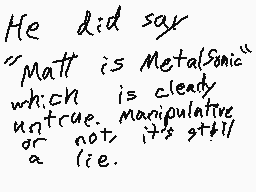 He did say
"Matt is MetalSonic"
which is clearly
untrue. Manipulative
or not, it's still
a lie.